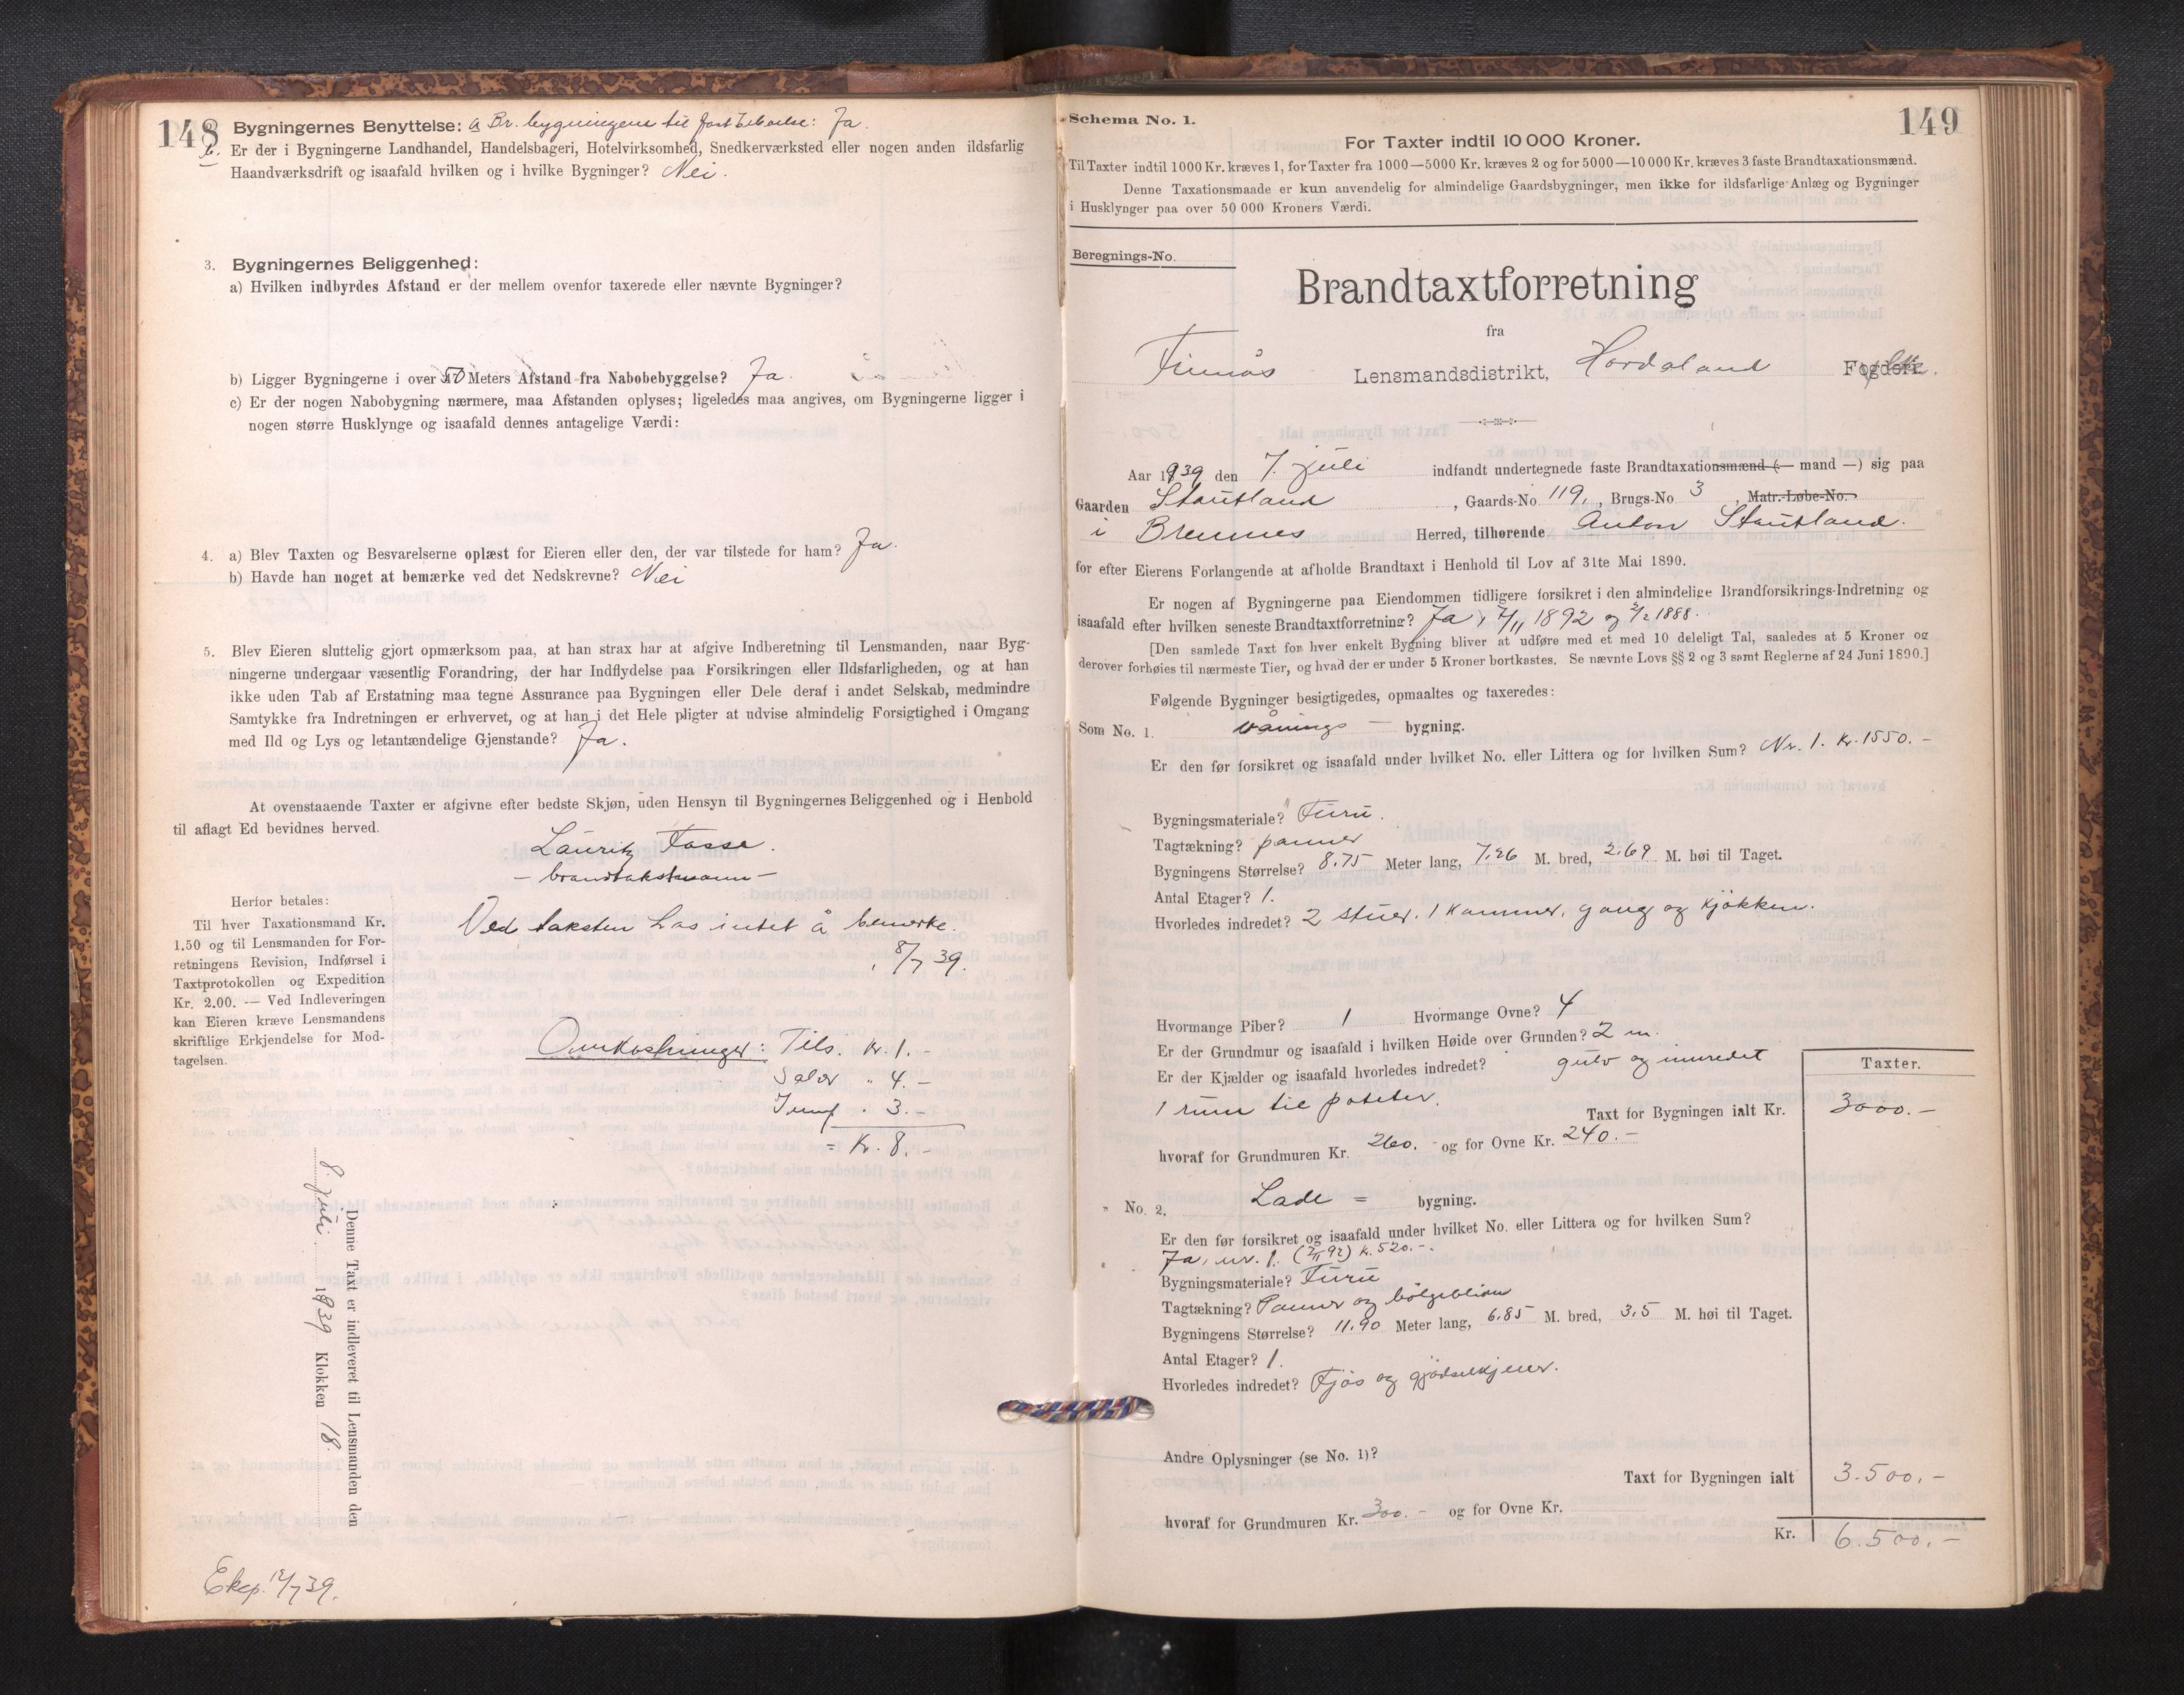 148
Bygningernes Benyttelse: a Br. bygningene til fast beboelse: Ja.
b. Er der i Bygningerne Landhandel, Handelsbageri, Hotelvirksomhed, Snedkerværksted eller nogen anden ildsfarlig
Haandværksdrift og isaafald hvilken og i hvilke Bygninger? Nei.
3. Bygningernes Beliggenhed:
a) Hvilken indbyrdes Afstand er der mellem ovenfor taxerede eller nævnte Bygninger?
b) Ligger Bygningerne i over 50 Meters Afstand fra Nabobebyggelse? Ja.
c) Er der nogen Nabobygning nærmere, maa Afstanden oplyses; ligeledes maa angives, om Bygningerne ligger i
nogen større Husklynge og isaafald dennes antagelige Værdi:
4. a) Blev Taxten og Besvarelserne oplæst for Eieren eller den, der var tilstede for ham? Ja.
b) Havde han noget at bemærke ved det Nedskrevne? Nei
5. Blev Eieren sluttelig gjort opmærksom paa, at han strax har at afgive Indberetning til Lensmanden, naar Byg-
ningerne undergaar væsentlig Forandring, der har Indflydelse paa Forsikringen eller Ildsfarligheden, og at han
ikke uden Tab af Erstatning maa tegne Assurance paa Bygningen eller Dele deraf i andet Selskab, medmindre
Samtykke fra Indretningen er erhvervet, og at han i det Hele pligter at udvise almindelig Forsigtighed i Omgang
med Ild og Lys og letantændelige Gjenstande? Ja.
At ovenstaaende Taxter er afgivne efter bedste Skjøn, uden Hensyn til Bygningernes Beliggenhed og i Henhold
til aflagt Ed bevidnes herved.
Lauritz Fosse.
- brandtakstmann -
Herfor betales:
Til hver Taxationsmand Kr.
1.50 og til Lensmanden for For-
retningens Revision, Indførsel i
Taxtprotokollen og Expedition
Kr. 2.00. — Ved Indleveringen
kan Eieren kræve Lensmandens
skriftlige Erkjendelse for Mod-
tagelsen.
Ved taksten has intet å bemerke.
8/7 39.
Omkostninger: Tils. Kr. 1.-
" 4.-
" 3.-
= Kr. 8.-
Denne Taxt er indleveret til Lensmanden den
8. juli 1939 Klokken 18.
Eksp. 12/7 39.
Schema No. 1.
149
For Taxter indtil 10 000 Kroner.
Til Taxter indtil 1000 Kr. kræves 1, for Taxter fra 1000—5000 Kr. kræves 2 og for 5000—10 000 Kr. kræves 3 faste Brandtaxationsmænd.
Denne Taxationsmaade er kun anvendelig for almindelige Gaardsbygninger, men ikke for ildsfarlige Anlæg og Bygninger
i Husklynger paa over 50 000 Kroners Værdi.
Beregnings-No.
Brandtaxtforretning
fra
Finnås Lensmandsdistrikt, Hordaland Fogderi. fylke.
Aar 1939 den 7. juli indfandt undertegnede faste Brandtaxationsmænd (— mand —) sig paa
Gaarden Stautland, Gaards-No. 119., Brugs-No. 3, Matr.-Løbe-No.
i Bremnes Herred, tilhørende Anton Stautland.
for efter Eierens Forlangende at afholde Brandtaxt i Henhold til Lov af 31te Mai 1890.
Er nogen af Bygningerne paa Eiendommen tidligere forsikret i den almindelige Brandforsikrings-Indretning og
isaafald efter hvilken seneste Brandtaxtforretning? Ja, 7/11 1892 og 2/2 1888.
[Den samlede Taxt for hver enkelt Bygning bliver at udføre med et med 10 deleligt Tal, saaledes at 5 Kroner og
derover forhøies til nærmeste Tier, og hvad der er under 5 Kroner bortkastes. Se nævnte Lovs §§ 2 og 3 samt Reglerne af 24 Juni 1890.]
Følgende Bygninger besigtigedes, opmaaltes og taxeredes:
Som No. 1. Vånings — bygning.
Er den før forsikret og isaafald under hvilket No. eller Littera og for hvilken Sum? Nr. 1. Kr. 1550.-
Bygningsmateriale? Furu.
Tagtækning? panner
Bygningens Størrelse? 8.75 Meter lang, 7.26 M. bred, 2.69 M. høi til Taget.
Antal Etager? 1.
Hvorledes indredet? 2 stuer, 1 kammer, gang og kjøkken.
Hvormange Piber? 1 Hvormange Ovne? 4
Er der Grundmur og isaafald i hvilken Høide over Grunden? 2 m.
Er der Kjælder og isaafald hvorledes indredet? gulv og innredet
1 rum til poteter.
Taxter.
Taxt for Bygningen ialt Kr. 3000.-
hvoraf for Grundmuren Kr. 260.- og for Ovne Kr. 240.-
" No. 2. Lade = bygning.
Er den før forsikret og isaafald under hvilket No. eller Littera og for hvilken Sum?
Ja, nr. 1. (7/11 92) K. 520.-
Bygningsmateriale? Furu
Tagtækning? Panner og bølgeblikk
Bygningens Størrelse? 11.90 Meter lang, 6.85 M. bred, 3,5 M. høi til Taget.
Antal Etager? 1.
Hvorledes indredet? Fjøs og gjødselkjeller.
Andre Oplysninger (se No. 1)?
Taxt for Bygningen ialt 3.500.-
hvoraf for Grundmuren Kr. 300.- og for Ovne Kr.
Kr. 6.500.-